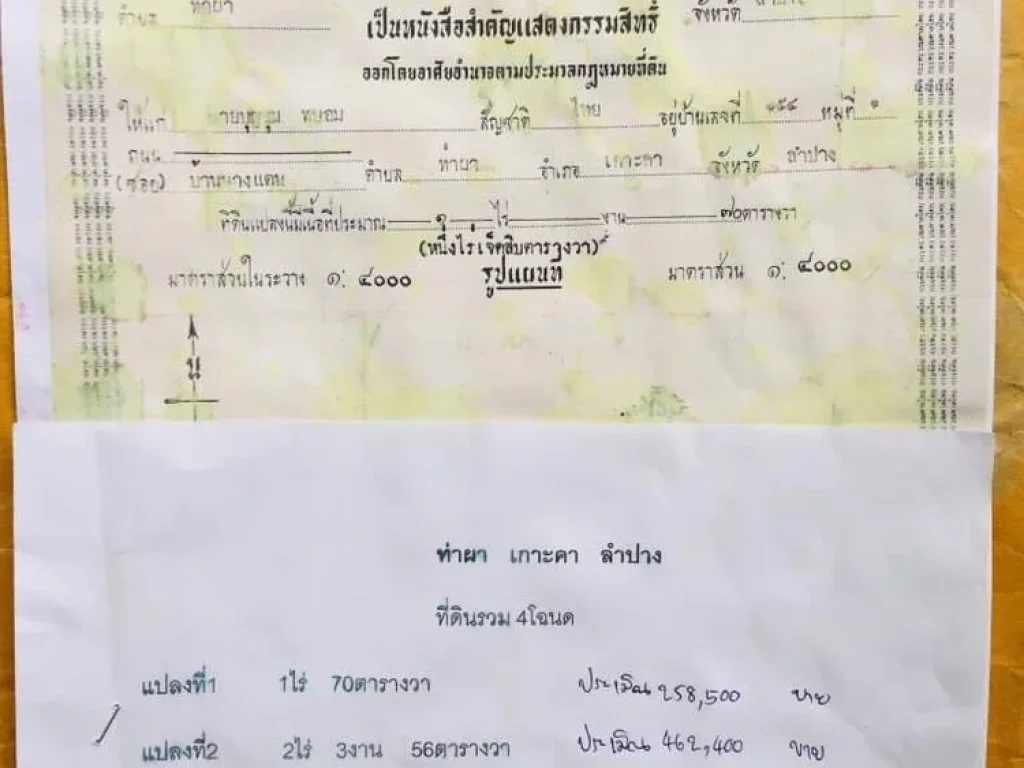 ตำบล ท่าผา จังหวัด ลำปาง
เป็นหนังสือสำคัญแสดงกรรมสิทธิ์
ออกโดยอาศัยอำนาจตามประมวลกฎหมายที่ดิน
ให้แก่ สัญชาติ ไทย อยู่บ้านเลขที่ หมู่ที่
ถนน
(ซอย) ตำบล ท่าผา อำเภอ เกาะคา จังหวัด ลำปาง
ที่ดินแปลงนี้มีเนื้อที่ประมาณ ๑ ไร่ งาน ๗๐ตารางวา
(หนึ่งไร่เจ็ดสิบตารางวา)
มาตราส่วนในระวาง ๑: ๔๐๐๐ รูปแผนที่ มาตราส่วน ๑: ๔๐๐๐
น
ท่าผา เกาะคา ลำปาง
ที่ดินรวม 4โฉนด
แปลงที่1 1ไร่ 70ตารางวา ประเมิน 258,500 ขาย
แปลงที่2 2ไร่ 3งาน 56ตารางวา ประเมิน 462,400 ขาย